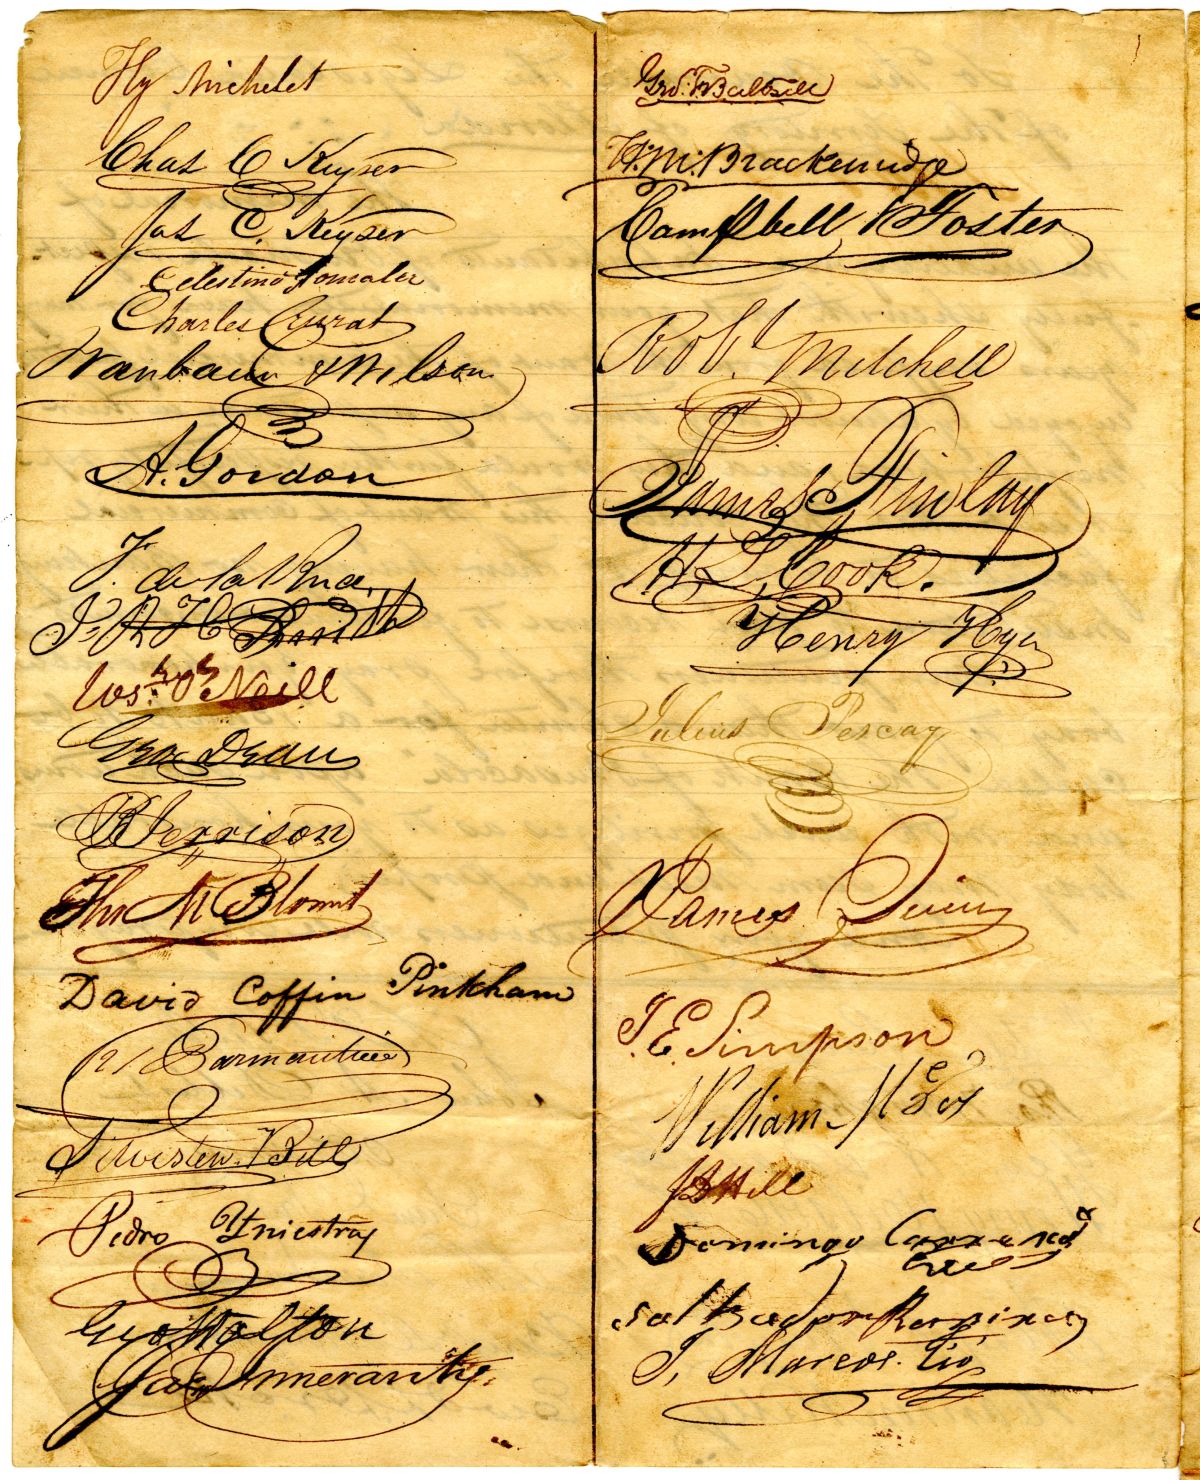 Hy Michelet
Chas C Keyser
Jas C. Keyser
Celestino Gonzalez
Charles Evrat
& Wilson
A. Gordon
F. de la Rua
Geo Dean
R Jerrison
Thos M Blount
David Coffin Pinkham
Silvester Bill
Pedro Yniestray
Geo Walton
Jas Innerarity
H. M. Brackenridge
Campbell Foster
Robt. Mitchell
James Finlay
H. L. Cook.
Henry Hyer
Julius Pescay
James Quin
J. E. Simpson
William
J B Hill
Domingo
Salbador
J. Marcos. Tio